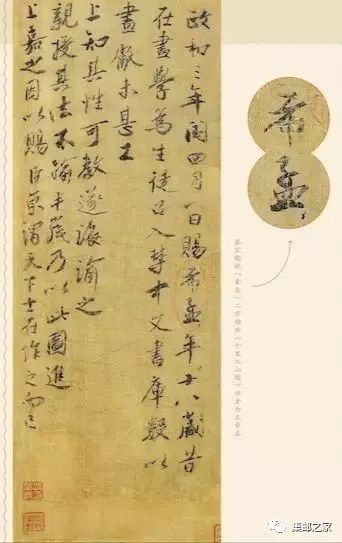 政和三年閏四月一日賜希孟年十八歲昔
在畫學爲生徒召入禁中文書庫數以
畫獻未甚工
上知其性可教遂誨諭之
親授其法不踰半歲乃以此圖進
上嘉之因以賜臣京謂天下士在作之而已
希孟
蔡京題跋「希孟」二字指出《千里江山圖》作者為王希孟
集邮之家